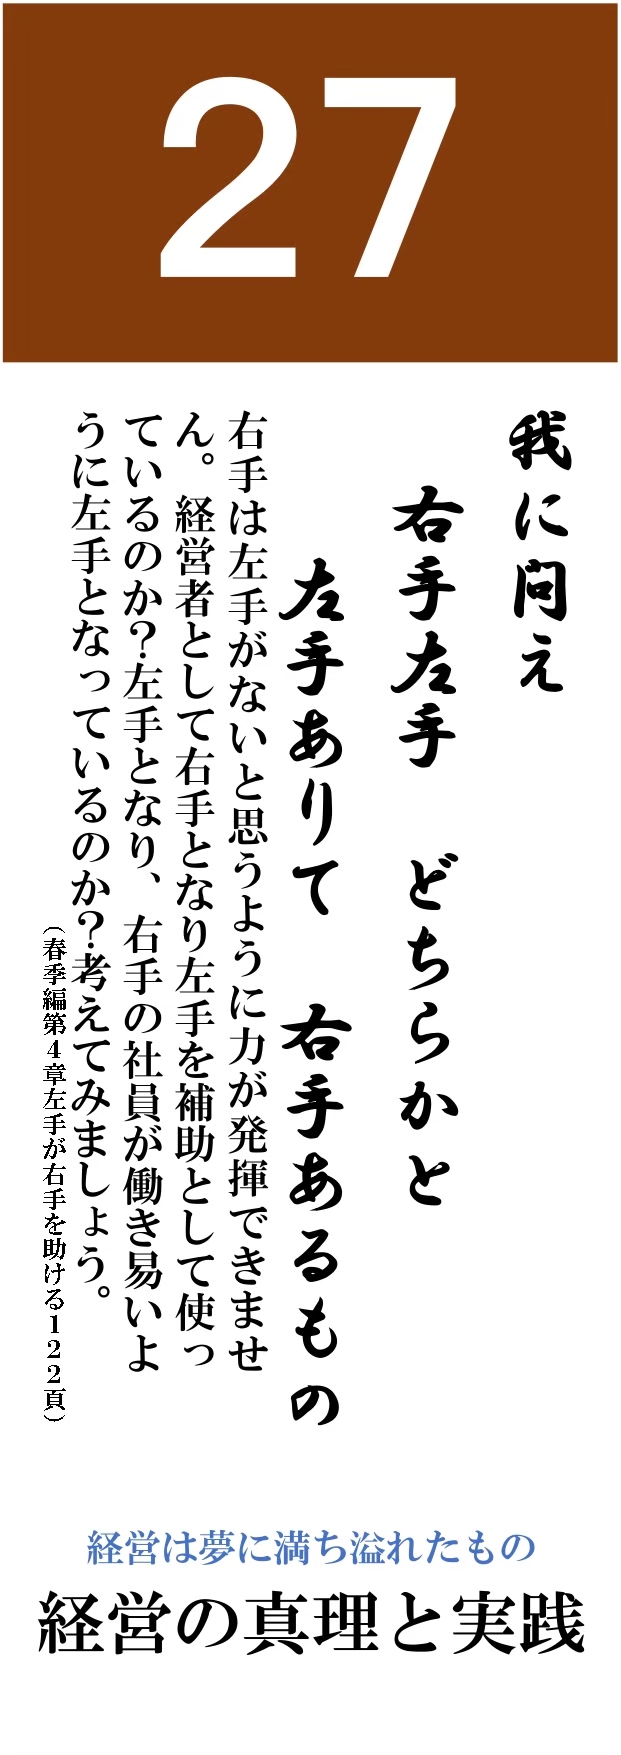 27
我に問え
右手左手　どちらかと
左手ありて　右手あるもの
右手は左手がないと思うように力が発揮できませ
ん。経営者として右手となり左手を補助として使っ
ているのか？左手となり、右手の社員が働き易いよ
うに左手となっているのか？考えてみましょう。
（春季編第4章左手が右手を助ける122頁）
経営は夢に満ち溢れたもの
経営の真理と実践